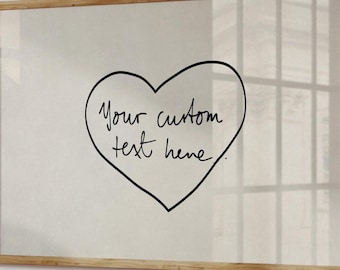 Your custom
text here.